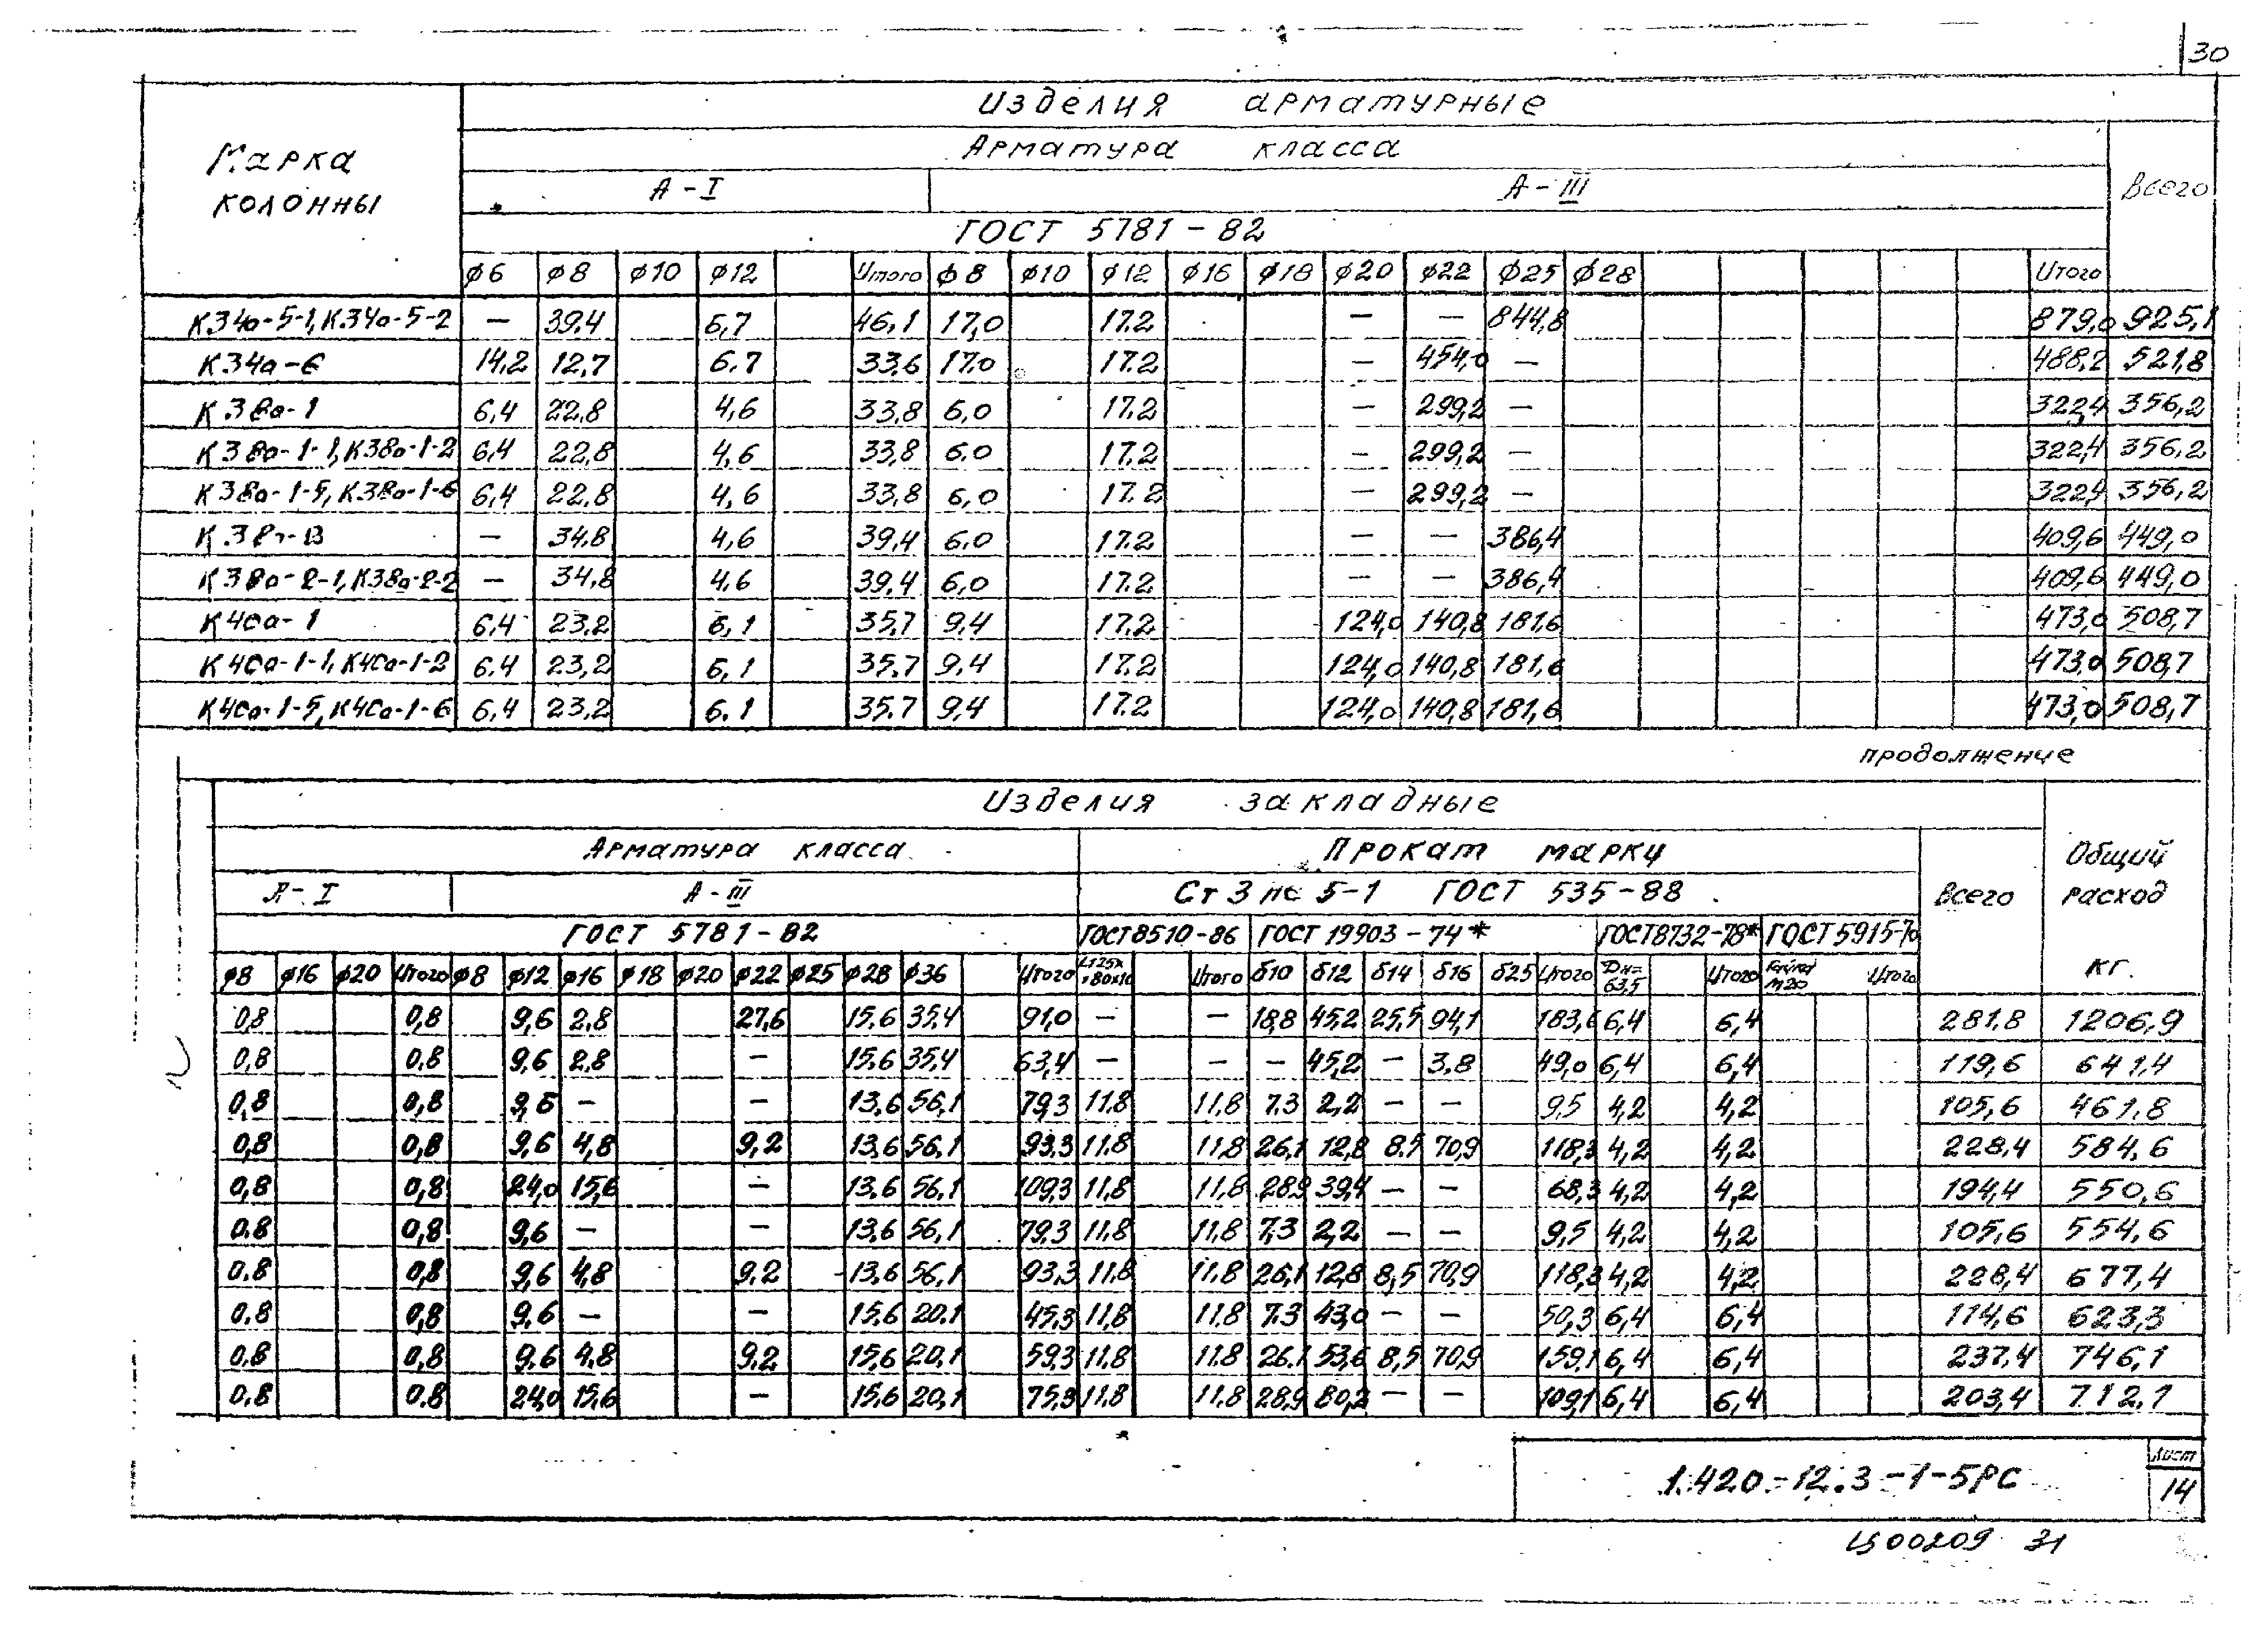 30
Изделия арматурные
Марка колонны
Арматура класса
Всего
А-I А-III
ГОСТ 5781-82
ϕ6 ϕ8 ϕ10 ϕ12 Итого ϕ8 ϕ10 ϕ12 ϕ16 ϕ18 ϕ20 ϕ22 ϕ25 ϕ28 Итого
К34а-5-1, К34а-5-2 — 39,4 6,7 46,1 17,0 17.2 — — 844,8 879,0 925,1
К34а-6 14,2 12,7 6.7 33,6 17.0 17.2 — 454,0 — 488,2 521,8
К38а-1 6,4 22,8 4,6 33,8 6,0 17.2 — 299,2 — 322,4 356,2
К38а-1-1, К38а-1-2 6,4 22,8 4,6 33,8 6.0 17.2 — 299,2 — 322,4 356,2
К38а-1-5, К38а-1-6 6,4 22,8 4,6 33,8 6,0 17.2 — 299,2 — 322,4 356,2
— 34,8 4,6 39,4 6.0 17.2 — — 386,4 409,6 449,0
К38а-2-1, К38а-2-2 — 34,8 4,6 39,4 6,0 17.2 — — 386,4 409,6 449,0
К40а-1 6,4 23,2 6,1 35,7 9,4 17.2 124,0 140,8 181,6 473,0 508,7
К40а-1-1, К40а-1-2 6,4 23,2 6,1 35,7 9,4 17.2 124,0 140,8 181,6 473,0 508,7
К40а-1-5, К40а-1-6 6,4 23,2 6.1 35.7 9,4 17.2 124,0 140,8 181,6 473,0 508,7
продолжение
Изделия закладные
Арматура класса Прокат марки
Всего
Общий расход кг.
А-I А-III Ст 3 пс 5-1 ГОСТ 535-88
ГОСТ 5781-82 ГОСТ 8510-86 ГОСТ 19903-74* ГОСТ 8732-78* ГОСТ 5915-70
ϕ8 ϕ16 ϕ20 Итого ϕ8 ϕ12 ϕ16 ϕ18 ϕ20 ϕ22 ϕ25 ϕ28 ϕ36 Итого L125х80х10 Итого δ10 δ12 δ14 δ16 δ25 Итого Дн=63,5 Итого Гайка М20 Итого
0,8 0,8 9,6 2,8 27,6 15,6 35,4 91,0 — — 18,8 45,2 25,5 94,1 183,6 6,4 6,4 281,8 1206,9
0,8 0,8 9,6 2,8 — 15,6 35,4 63,4 — — — 45,2 — 3.8 49,0 6,4 6,4 119,6 641,4
0,8 0,8 9,6 — — 13,6 56,1 79,3 11,8 11,8 7.3 2,2 — — 9,5 4,2 4,2 105,6 461,8
0,8 0,8 9,6 4,8 9,2 13,6 56,1 93,3 11,8 11,8 26,1 12,8 8,5 70,9 118,3 4,2 4,2 228,4 584,6
0,8 0,8 24,0 15,6 — 13,6 56,1 109,3 11,8 11,8 28,9 39,4 — — 68,3 4,2 4,2 194,4 550,6
0.8 0,8 9,6 — — 13,6 56,1 79.3 11,8 11,8 7,3 2,2 — — 9,5 4,2 4,2 105,6 554,6
0.8 0,8 9,6 4,8 9,2 13,6 56,1 93,3 11,8 11.8 26,1 12,8 8,5 70,9 118,3 4,2 4,2 228,4 677,4
0.8 0,8 9,6 — — 15,6 20,1 45,3 11,8 11.8 7.3 43,0 — — 50,3 6,4 6,4 114,6 623,3
0.8 0,8 9,6 4,8 9,2 15,6 20,1 59,3 11,8 11.8 26.1 53,6 8,5 70,9 159,1 6,4 6,4 237,4 746,1
0.8 0.8 24,0 15,6 — 15,6 20,1 75,3 11,8 11,8 28,9 80,2 — — 109,1 6,4 6,4 203,4 712,1
1.420-12.3-1-5РС
Лист
14
Ц00209 31